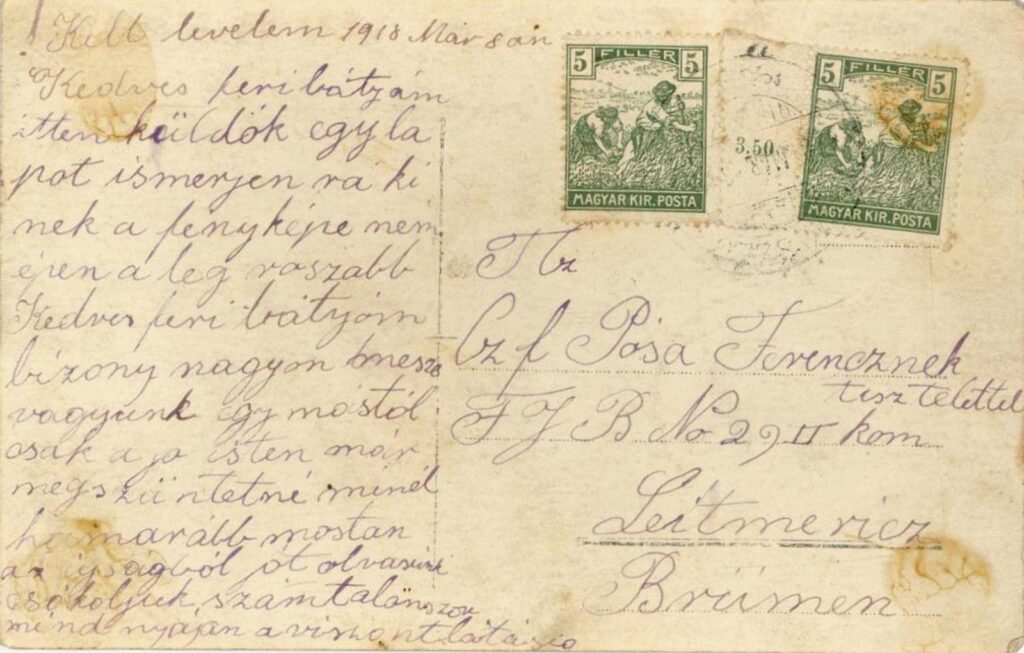 Kelt levelem 1918 Már 8 án
Kedves feri bátyám
itten küldök egy la
pot ismerjen rá ki
nek a fenyképe nem
épen a leg roszabb
Kedves feri bátyám
bizony nagyon mesze
vagyunk egy mástól
csak a jo isten már
megszüntetné minél
hamarább mostan
az ujságból jót olvasunk
csókoljuk számtalanszor
mind nyájan a viszontlátásra
5 FILLÉR 5
MAGYAR KIR. POSTA
3.50
5 FILLÉR 5
MAGYAR KIR. POSTA
Tlz
Cz f Pósa Ferencznek
tisztelettel
F J B No 29 II kom
Leitmericz
Brümen